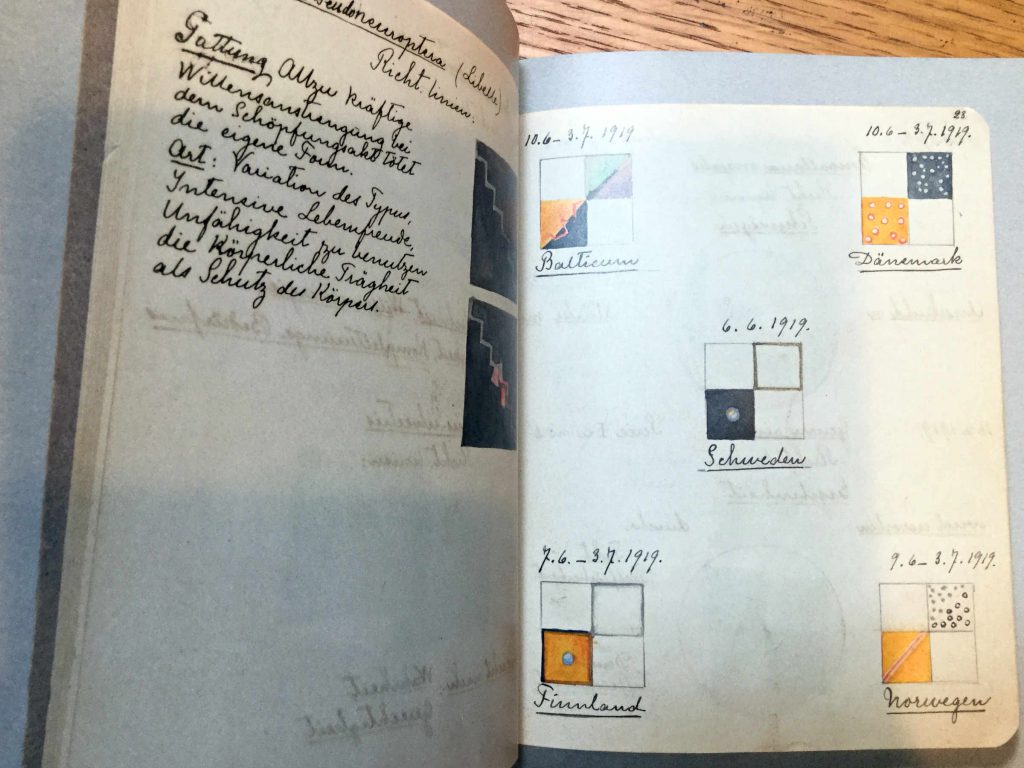 (Libelle)
Richt. linien.
Gattung Allzu kräftige
Willensanstrangang bei
dem Schöpfungsakt tötet
die eigene Form.
Art: Variation des Typus,
Intensive Lebenfreude,
Unfähigkeit zu benutzen
die Körperliche Trägheit
als Schutz des Körpers.
23.
10.6 – 3.7. 1919
Balticum
10.6 – 3.7. 1919.
Dänemark
6. 6. 1919.
Schweden
7.6. – 3.7. 1919.
Finnland
9.6 – 3.7. 1919.
Norwegen